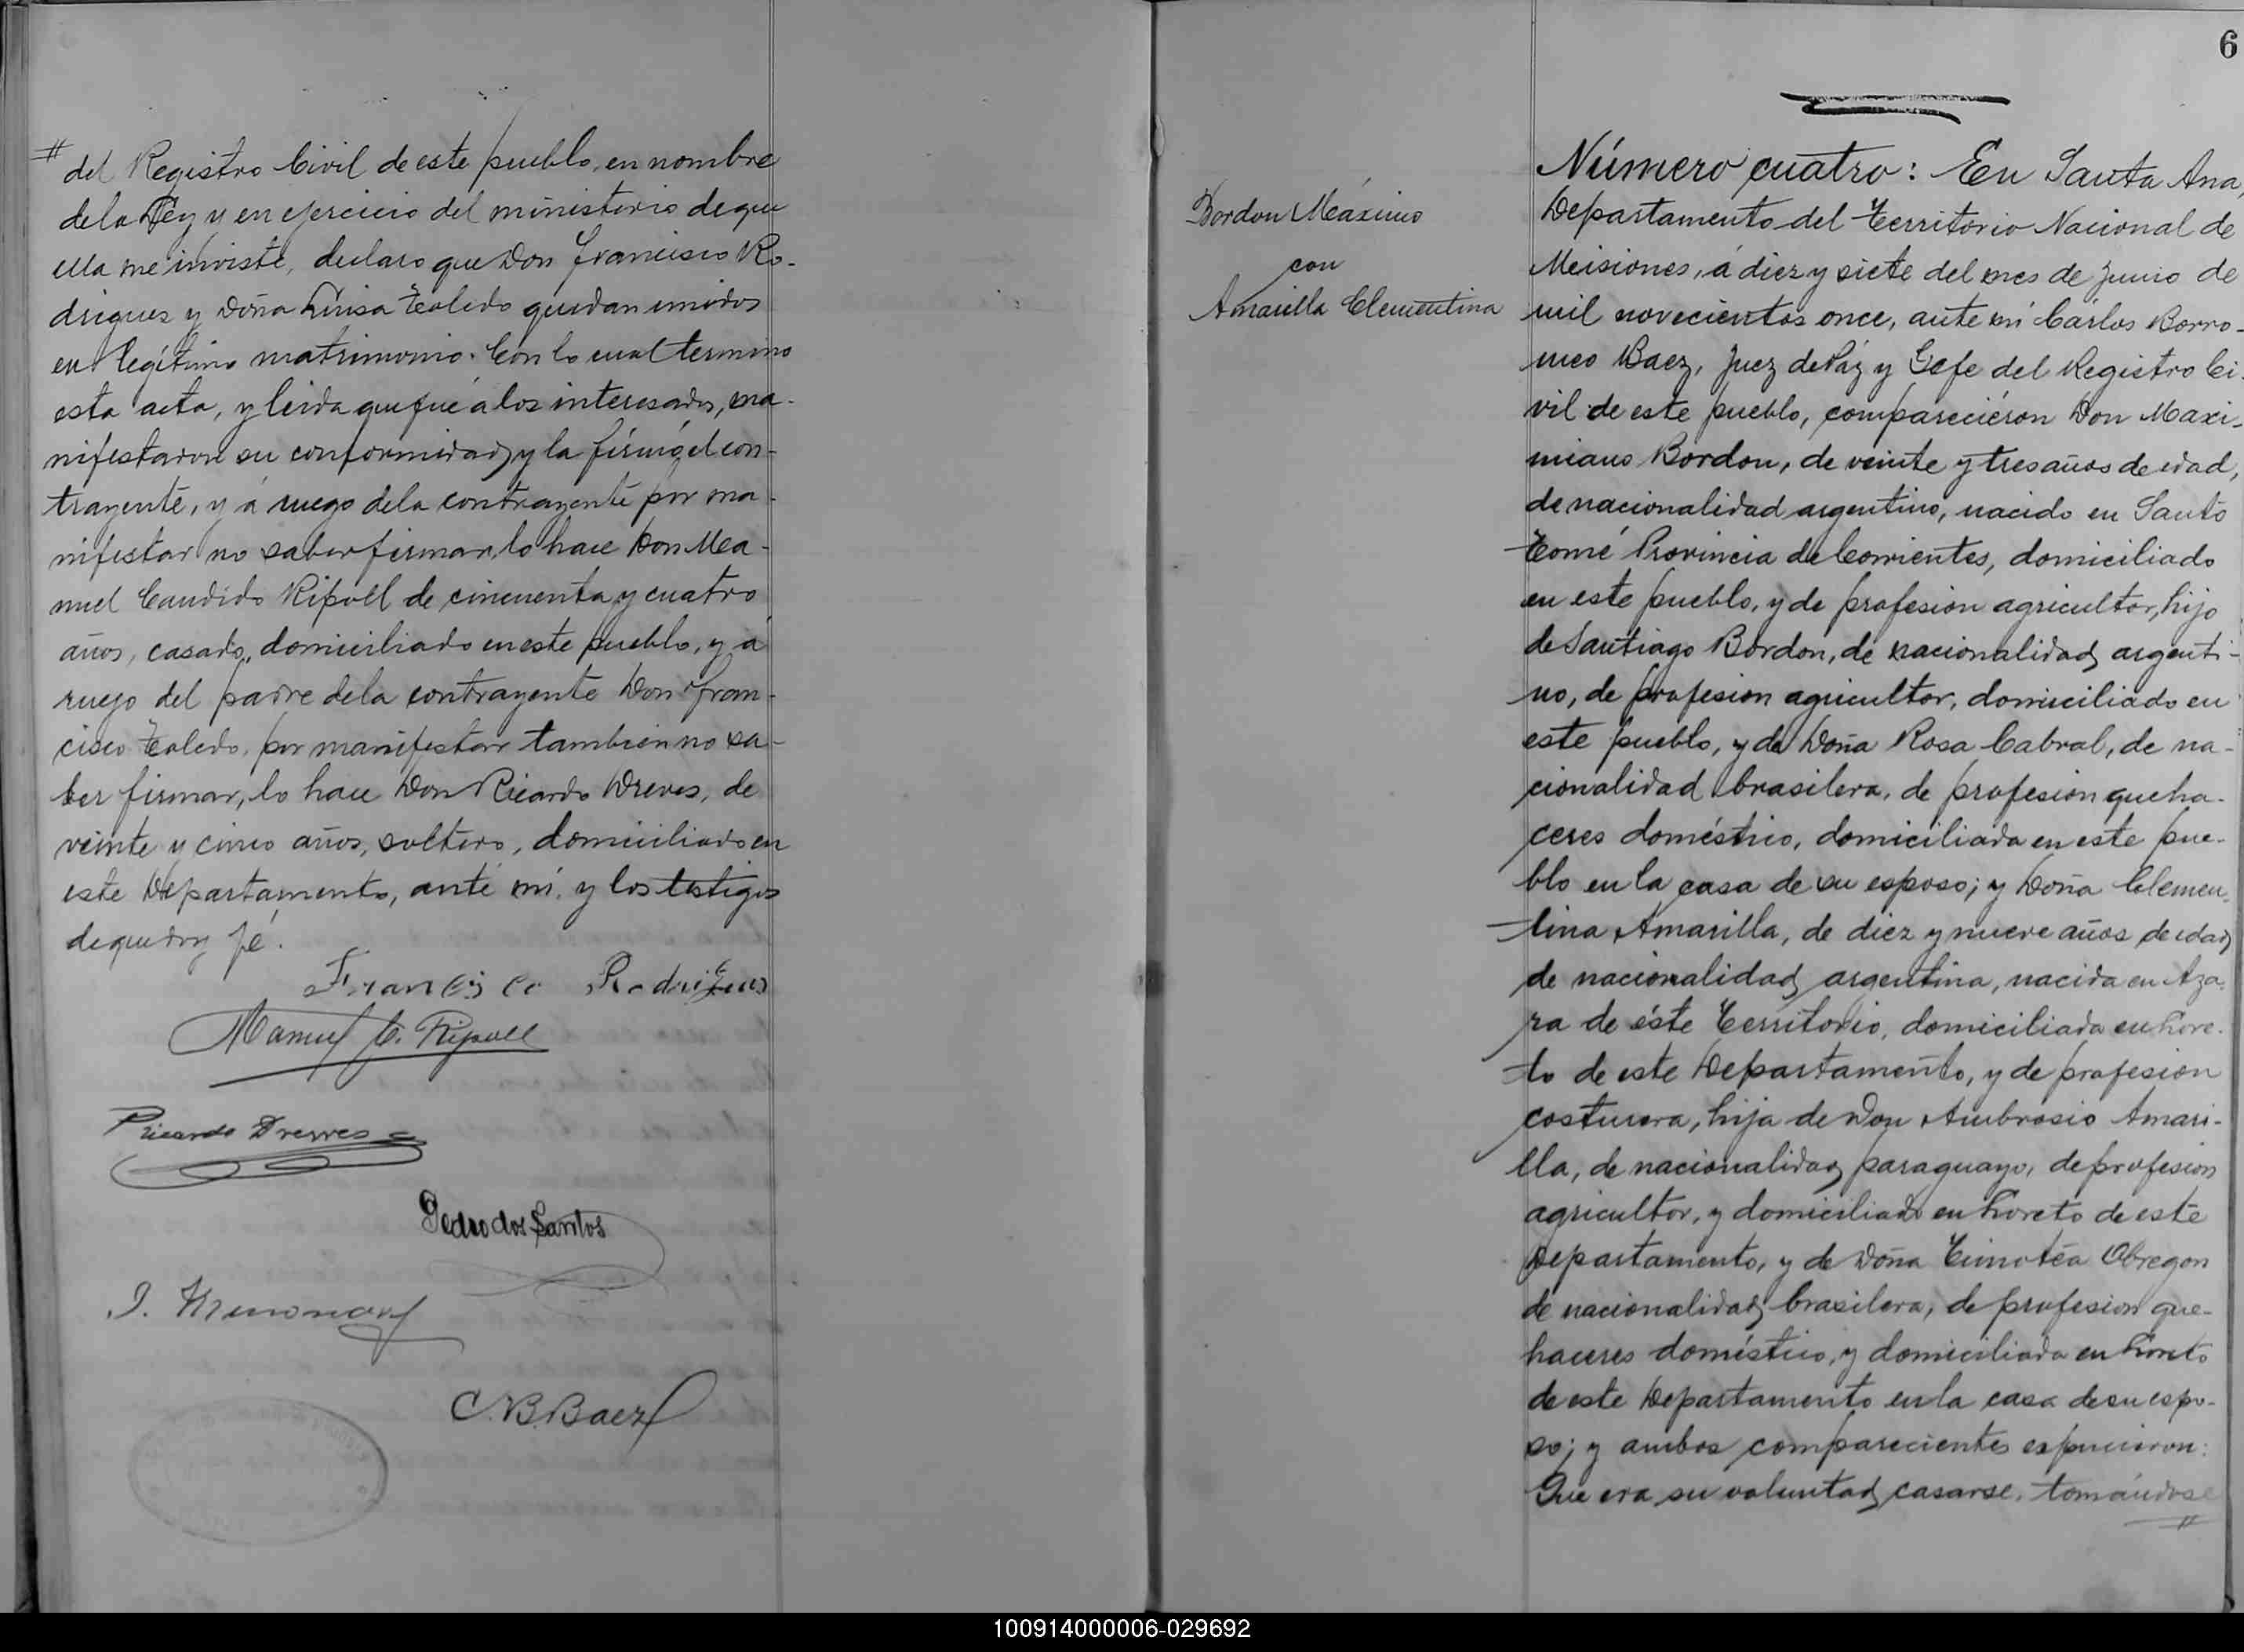 # del Registro Civil de este pueblo, en nombre
de la Ley y en ejercicio del ministerio de que
ella me inviste, declaro que Don Francisco Ro-
drigues y Doña Luisa Toledo quedan unidos
en legítimo matrimonio. Con lo cual termino
esta acta, y leida que fué a los interesados, ma-
nifestaron su conformidad y la firmó el con-
trayente, y á ruego de la contrayente por ma-
nifestar no saber firmar, lo hace Don Ma-
nuel Candido Ripoll de cincuenta y cuatro
años, casado, domiciliado en este pueblo, y á
ruego del padre de la contrayente Don Fran-
cisco Toledo, por manifestar tambien no sa-
ber firmar, lo hace Don Ricardo Dreves, de
veinte y cinco años, soltero, domiciliado en
este Departamento, ante mí y los testigos
de que doy fé.
Francisco Rodrigues
Manuel C. Ripoll
Ricardo Drewes
Pedro dos Santos
C.B. Baez
6
Bordon Máximo
con
Amarilla Clementina
Número cuatro: En Santa Ana,
Departamento del Territorio Nacional de
Misiones, á diez y siete del mes de Junio de
mil novecientos once, ante mí Cárlos Borro-
meo Baez, Juez de Páz y Gefe del Registro Ci-
vil de este pueblo, compareciéron Don Maxi-
miano Bordon, de veinte y tres años de edad,
de nacionalidad argentino, nacido en Santo
Tomé Provincia de Corrientes, domiciliado
en este pueblo, y de profesion agricultor, hijo
de Santiago Bordon, de nacionalidad argenti-
no, de profesion agricultor, domiciliado en
este pueblo, y de Doña Rosa Cabral, de na-
cionalidad brasilera, de profesion queha-
ceres doméstico, domiciliada en este pue-
blo en la casa de su esposo; y Doña Clemen-
tina Amarilla, de diez y nueve años de edad
de nacionalidad argentina, nacida en Aza-
ra de éste Territorio, domiciliada en Lore-
to de este Departamento, y de profesion
costurera, hija de Don Ambrosio Amari-
lla, de nacionalidad paraguayo, de profesion
agricultor, y domiciliado en Loreto de este
Departamento, y de Doña Timotéa Obregon
de nacionalidad brasilera, de profesion que-
haceres doméstico, y domiciliada en Loreto
de este Departamento en la casa de su espo-
so; y ambos comparecientes espusieron:
Que era su voluntad casarse, tomándose
100914000006-029692